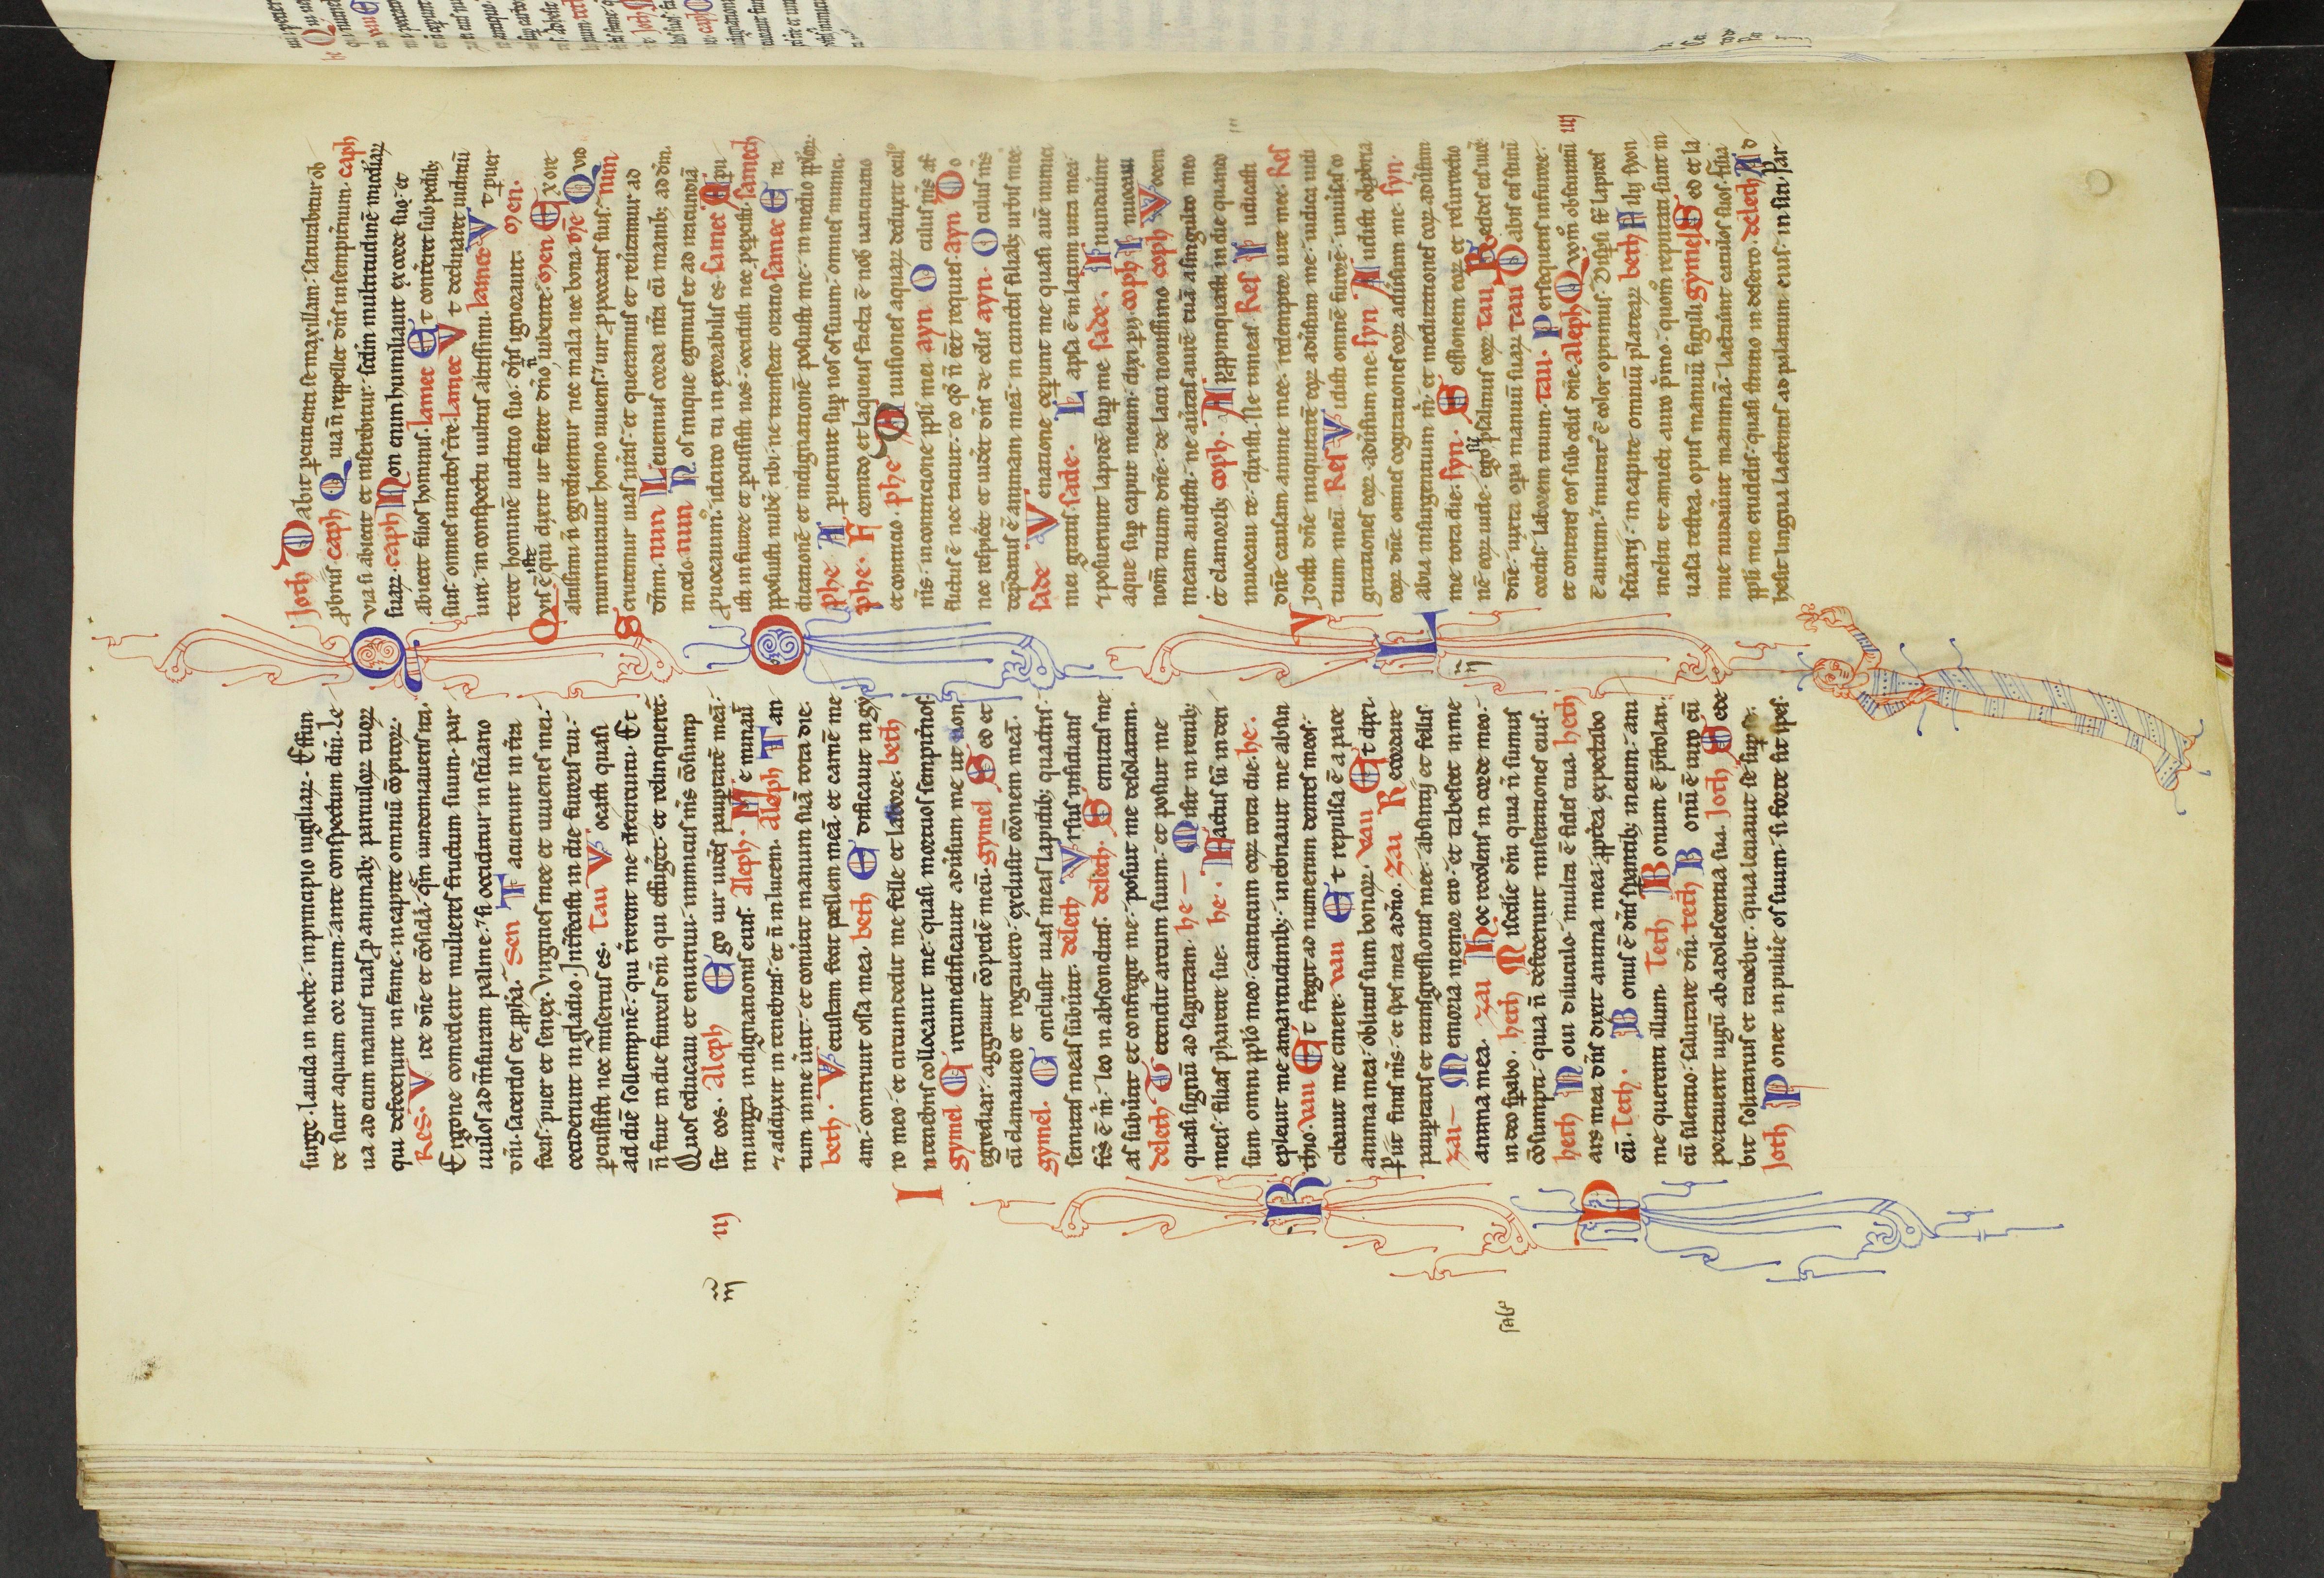 surge. lauda in nocte. in principio uigiliaꝝ. Effun
de sicut aquam cor tuum. ante conspectum dn̄i. Le
ua ad eum manus tuas ꝓ animabꝫ paruuloꝝ tuoꝝ
qui defecerunt in fame. in capite omniū cōpitoꝝ.
Res. Vide dn̄e et cōsidā. qm̄ uindemiaueris ita.
Ergone comedent mulieres fructum suum. par
uulos ad m̄suram palme. si occiditur in sc̄uario
dn̄i. sacerdos et ꝓph̄a. Sen Tacuerunt in t̄ra
foris. puer et senex. Virgines mee et iuuenes mei.
ceciderunt in gladio. Int̄fecisti in die furoris tui.
ꝑcussisti nec misertus es. Tau Vocasti quasi
ad diē sollempnē. qui t̄rerent me de circuitu. Et
n̄ fuit in die furoris dn̄i qui effug̾et. et relinqueret̄.
Quos educaui et enutriui. inimicus m̄s cōsump
sit eos. Aleph Ego uir uidēs pauꝑtatē meā.
in uirga indignationis eius. Aleph. Me minauit
⁊ adduxit in tenebras. et n̄ in lucem. aleph Tan
tum in me u̾tit. et conu̾tit manum suā tota die.
beth. Vetustam fecit pellem meā. et carnē me
am. contriuit ossa mea. beth Edificauit in gy
ro meo. et circumdedit me felle et labore. beth
In tenebris collocauit me. quasi mortuos sempit̾nos.
gymel Circumedificauit adu̾sum me ut non
egrediar. aggrauit cōpedē meū. gymel Sed et
cū clamauero et rogauero. exclusit or̄onem meā.
gymel. Conclusit uias meas lapidibꝫ quadris.
semitas meas subu̾tit. deleth Vrsus insidians
fc̄s ē m̄. leo in absconditis. deleth. Semitas me
as subu̾tit et confregit me. posuit me desolatam.
deleth Tetendit arcum suum. et posuit me
quasi signū ad sagittam. he Misit in renibꝫ
meis. filias pharetre sue. he. Factus sū in deri
sum omni pp̄lo meo. canticum eoꝝ tota die. he.
Repleuit me amaritudinibꝫ. inebriauit me absin
thio. van Et fregit ad numerum dentes meos.
cibauit me cinere. van Et repulsa ē a pace
anima mea. oblitus sum bonoꝝ. van Et dixi.
Periit finis m̄s. et spes mea a dn̄o. zai Recordare
pauꝑtatis et transgressionis mee. absintij et fellis.
zai Memoria memor ero. et tabescet in me
anima mea. zai Hoc recolens in corde meo.
in deo sꝑabo. heth Mis̄cdie dn̄i quia n̄ sumus
cōsumpti. quia n̄ defecerunt miserationes eius.
heth Noui diluculo. multa ē fides tua. heth
Pars mea dn̄s dixit anima mea. ꝓpt̾ea expectabo
eū. Teth. Bonus ē dn̄s sꝑantibꝫ in eum. ani
me querenti illum. Teth Bonum ē p̄stolari.
cū silentio. salutare dn̄i. teth Bonū ē uiro cū
portauerit iugū ab adolescentia sua. Joth Sede
bit solitarius et tacebit. quia leuauit se suꝑ se.
Joth Ponet in puluere os suum. si forte sit spes.
iij
Joth Dabit ꝑcutienti se maxillam. saturabitur ob
ꝓbriis. caph Quia n̄ repellet dn̄s in sempit̾num. caph
Quia si abiecit et miserebitur. sc̄dm multitudinē mis̄diaꝝ
suaꝝ. caph Non enim humiliauit ex corde suo. et
abiecit filios hominis. lamet Et cont̾eret sub pedibꝫ
suis. omnes uinctos t̄re. lamet Vt declinaret iudiciū
uiri. in conspectu uultus altissimi. lamet Vt ꝑuer
teret hominē iudicio suo. dn̄s ignorauit. Men.
Quis ē iste qui dixit ut fieret dn̄o n̄ iubente. Men Ex ore
altissimi n̄ egredientur nec mala nec bona. Men Quid
murmurauit homo uiuens. uir ꝓ peccatis suis. Nun
Scrutemur uias n̄ras. et queramus et reu̾tamur ad
dn̄m. nun Leuemus corda nr̄a cū manibꝫ. ad dn̄m.
in celos. nun Nos inique egimus et ad iracundiā
ꝓuocauimꝰ. idcirco tu inexorabilis es. samet Oꝑu
isti in furore et ꝑcussisti nos. occidisti nec peꝑcisti. samech
Opposuisti nubē tibi. ne transeat oratio. samec Era
dicationē et indignationē posuisti me. in medio pp̄loꝝ.
phe Aꝑuerunt suꝑ nos os suum. omnes inimici.
phe. Formido et laqueus facta ē nob̄ uaticinatio
et contricio. phe Diuisiones aquaꝝ deduxit oculꝰ
m̄s. in contricione pp̄li mei. ayn Oculus m̄s af
flictus ē nec tacuit. eo qd̄ n̄ eēt requies. ayn Do
nec respic̾et et uideret dn̄s de celis. ayn. Oculus m̄s
dep̄datus ē animam meā. in cunctis filiabꝫ urbis mee.
sade Venatione ceꝑunt me quasi auē inimici
mei gratis. sade. Lapsa ē in lacum uita mea.
⁊ posuerunt lapidē suꝑ me sade. Inundau̾unt
aque suꝑ caput meum. dixi ꝑij. coph Inuocaui
nom̄ tuum dn̄e. de lacu nouissimo coph Vocem
meam audisti. ne au̾tas aurē tuā a singultu meo
et clamoribꝫ. coph. Appropinquasti in die quando
inuocaui te. dixisti. Ne timeas. Res Iudicasti
dn̄e causam anime mee. redemptor uite mee. Res
Vidisti dn̄e iniquitatē eoꝝ adu̾sum me. iudica iudi
cium meū. Res Vidisti omnē furorē. uniu̾sas co
gitationes eoꝝ. adu̾sum me. syn Audisti obprobria
eoꝝ dn̄e. omnes cogitationes eoꝝ adu̾sum me. syn.
Labia insurgentium m̄. et meditationes eoꝝ. adu̾sum
me tota die. syn. Sessionem eoꝝ et resurrectio
nē eoꝝ uide. ego sū psalmus eoꝝ. tau. Reddes eis uicē
dn̄e. iuxta oꝑa manuū suaꝝ. tau Dabis eis scutū
cordis. laborem tuum. tau. Persequens in furore.
et conteres eos sub celis dn̄e. aleph Quom̄ obscuratū
ē aurum. mutatꝰ ē color optimus. Dispsi st̄ lapides
sc̄uarij. in capite omniū plateaꝝ. beth Filij syon
incliti et amicti auro p̄mo. quom̄ reputati sunt in
uasa testea. opus manuū figuli. gymel Sed et la
mie nudau̾unt mammā. lactau̾unt catulos suos. filia
pp̄li mei crudelis. quasi strutio in deserto. deleth Ad
hesit lingua lactentis ad palatum eius. in siti. Par
iij